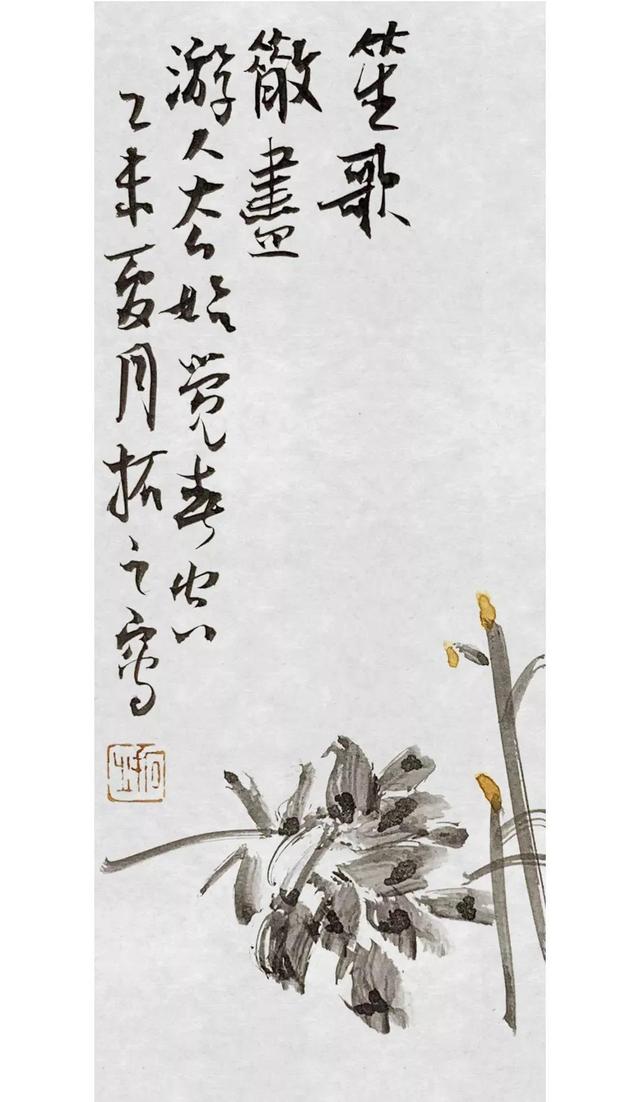 笙歌
散盡
游人去始覺春空
乙未夏月拓之寫